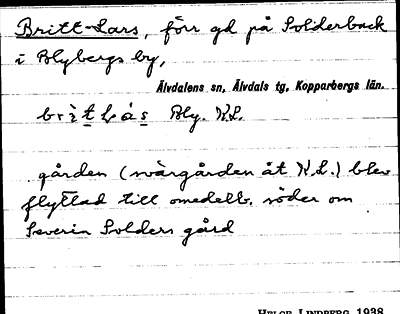 Britt-Lars, förr gd på Solderback
i Blybergs by,
Älvdalens sn, Älvdals tg, Kopparbergs län.
Bly. K.L.
gården (svärgården åt K.L.) blev
flyttad till omedelb. söder om
Severin Solders gård
HELGE LINDBERG 1938